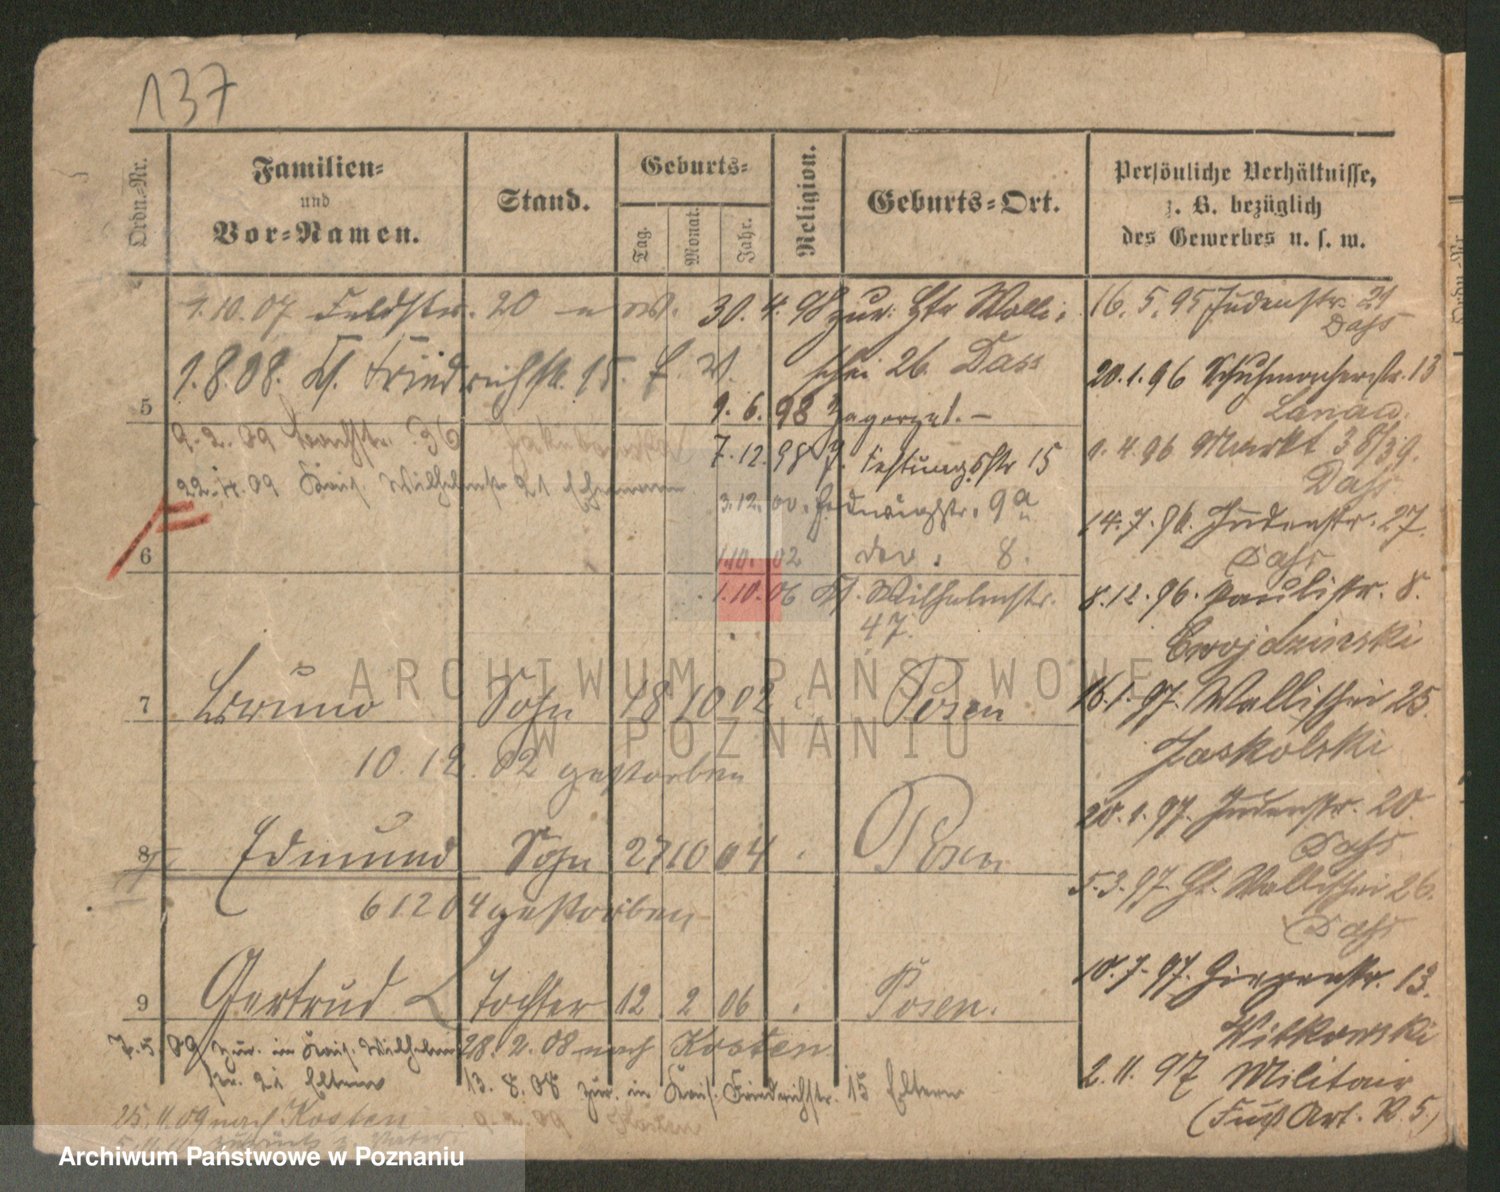 137
Ordn.-Nr.
Familien-
und
Vor-Namen.
Stand.
Geburts-
Tag.
Monat.
Jahr.
Religion.
Geburts-Ort.
Persönliche Verhältnisse,
z. B. bezüglich
des Gewerbes u. s. w.
1.10.07 Feldstr. 20
1.8.08. Kl. Friedrichstr. 15.
5
9.2.09 36
22.4.09 Kais. Wilhelmstr 21
6
30.4.98 zur. Gr. Walli-
schei 26. Dass
9.6.98 Zagorzet. –
7.12.98 Z. Festungsstr 15
3.12.00. Hedwigstr. 9a
1.10.02 do. 8.
1.10.06 Kl. Wilhelmstr.
47.
7 Bruno Sohn 18 10 02 Posen
10.12.02 gestorben
8 Edmund Sohn 27 10 04 Posen
6 12 04 gestorben
9 Gertrud L Tochter 12 2 06 Posen.
7.5.09 zur. in Kais. Wilhelm
str. 21 Eltern
28.2.08 nach Kosten
13.8.08 zur. in Kais. Friedrichstr. 15 Eltern
25.11.09 nach Kosten
9.2.09 Kosten
16.5.95 Judenstr. 29
Dass
20.1.96 Schuhmacherstr. 13
1.4.96 Markt 38/39.
Dass
14.7.96. Judenstr. 27.
Dass
8.12.96. Paulistr. 8.
16.1.97. Wallischei 25.
Jaskolski
20.1.97. Judenstr. 20.
Dass
5.3.97. Gr. Wallischei 26.
Dass
10.7.97. 13.
Witkowski
2.11.97 Militair
(Fuß Art. R. 5.)
ARCHIWUM PAŃSTWOWE
W POZNANIU
Archiwum Państwowe w Poznaniu